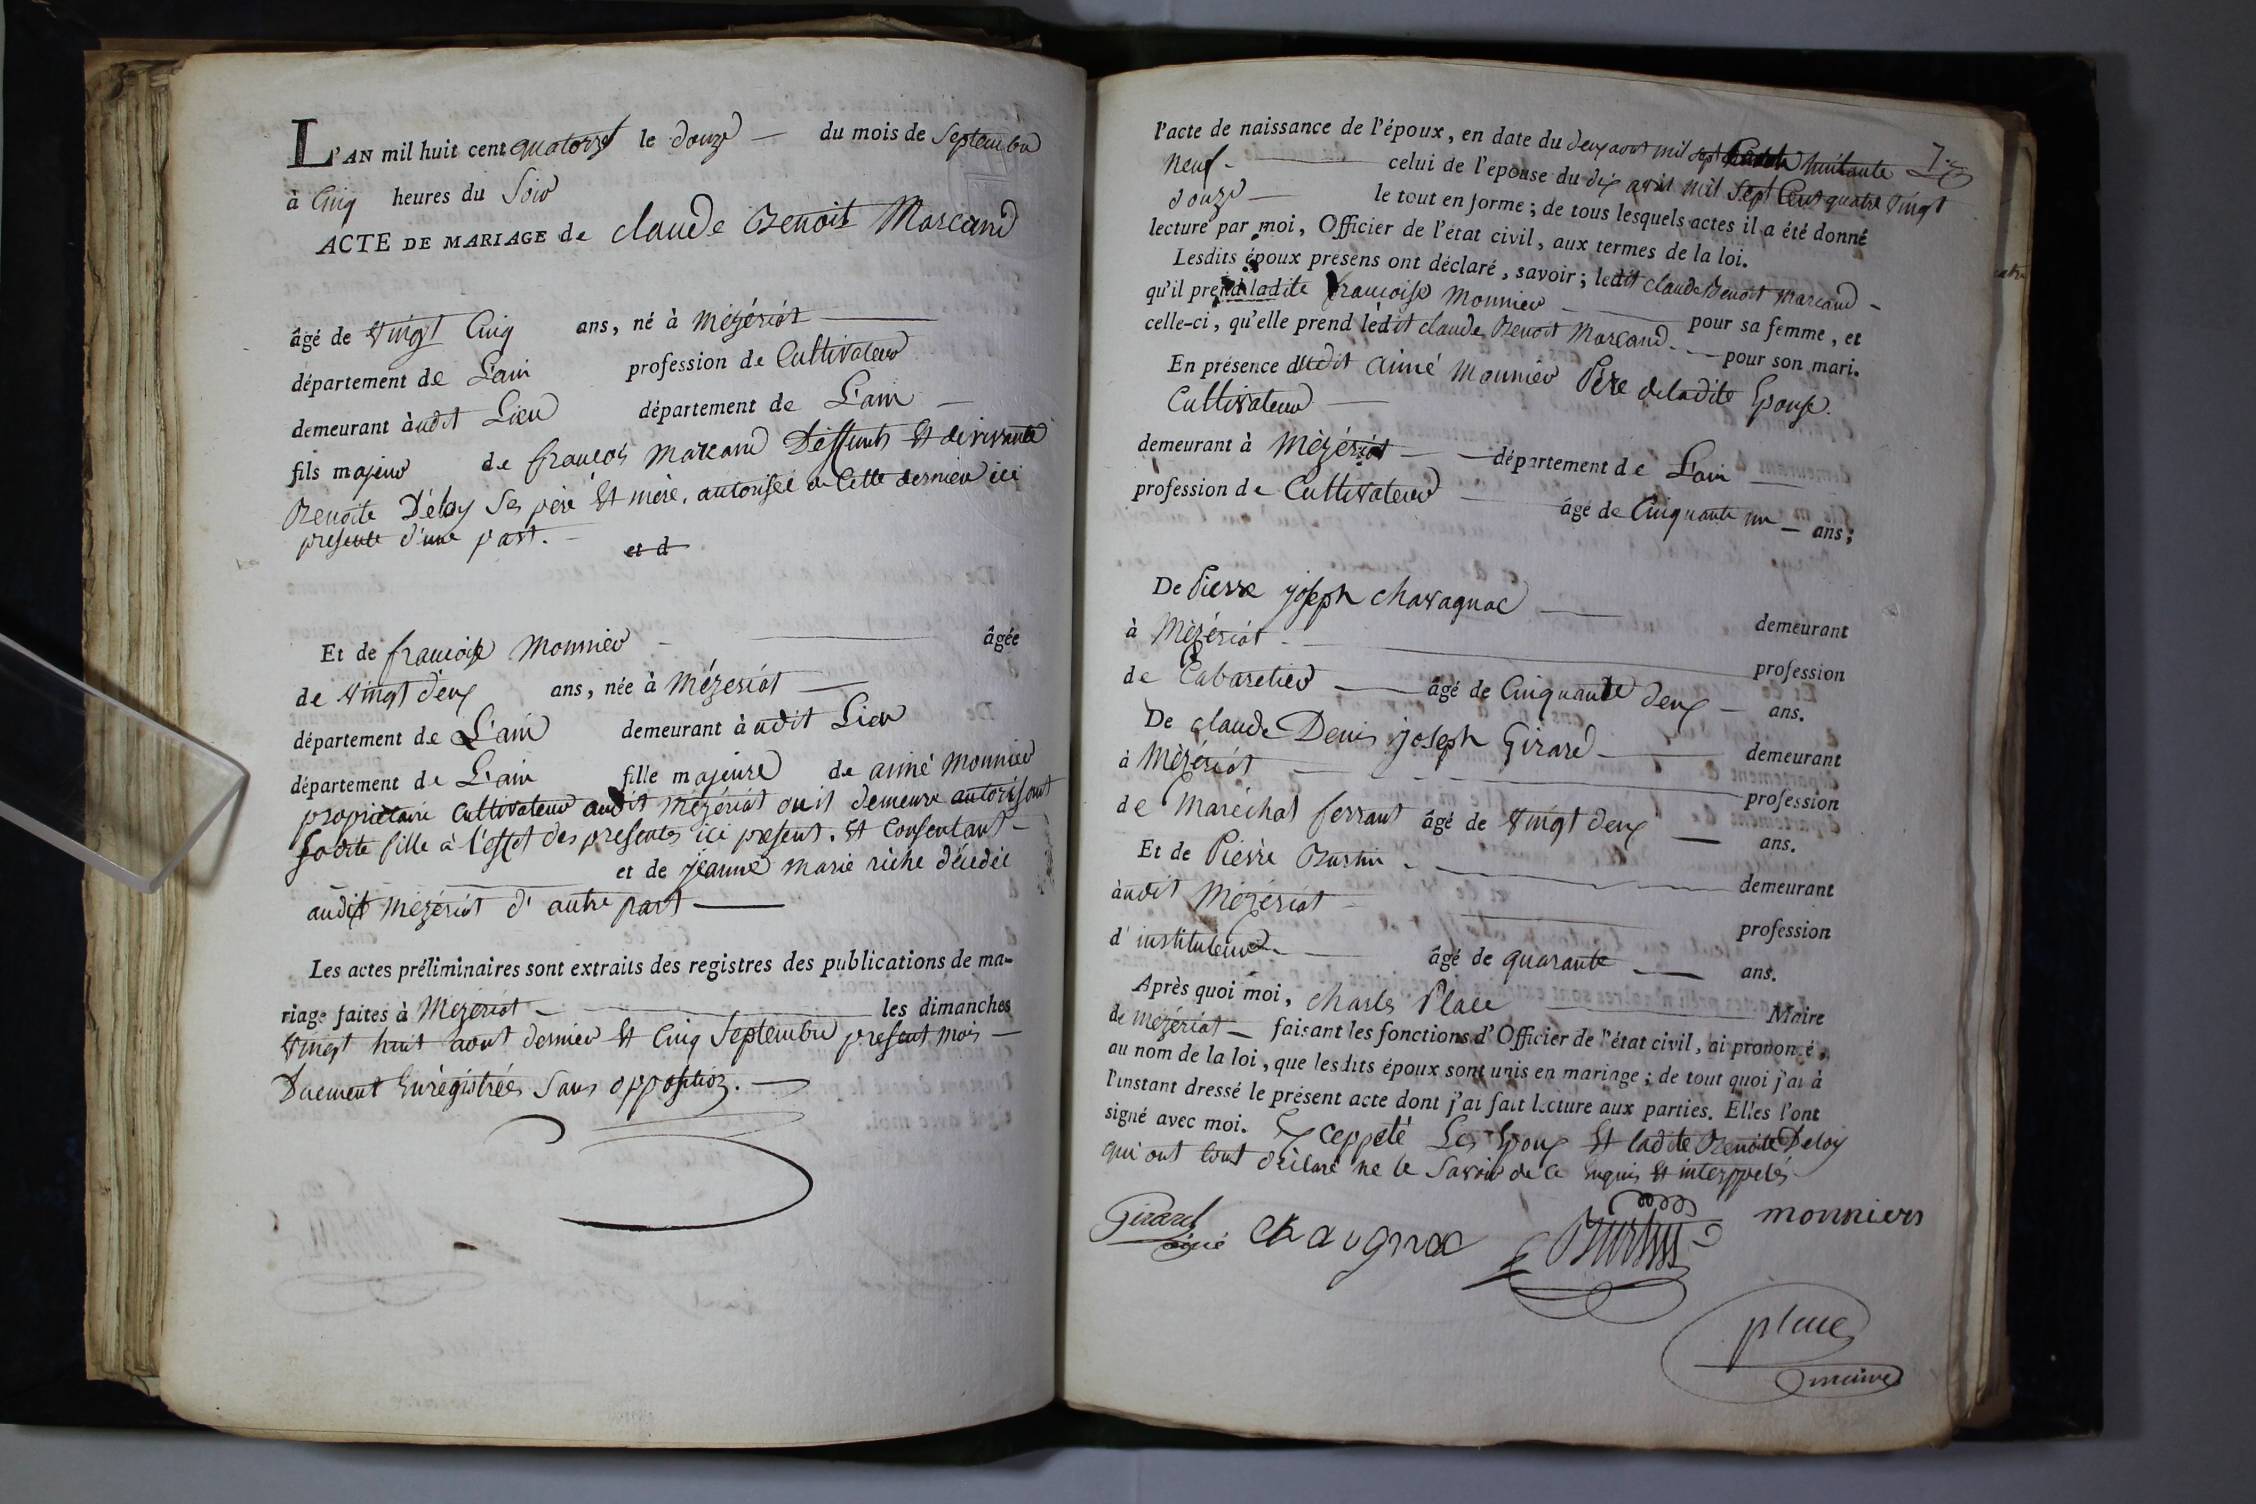 L'AN mil huit cent quatorze le douze — du mois de Septembre
à Cinq heures du Soir
ACTE DE MARIAGE de Claude Benoit Marcand
âgé de vingt Cinq ans, né à Mézériat
département de L'ain profession de Cultivateur
demeurant àudit Lieu département de L'ain —
fils majeur de françois Marcand Déffunts Et de vivante
Benoite Déloy Ses père Et mère, autorisée de Cette dernier ici
présente d'une part. —
et d
Et de françoise Monnier — âgée
de vingt deux ans, née à Mézériat —
département de L'ain demeurant àudit Lieu
département de L'ain fille majeure de aimé Monnier
propriétaire Cultivateur audit Mézériat ou il demeure autorisant
sadite fille à l'effet des presentes ici présent. Et Consentant —
et de jeanne Marie riche décédée
audit Mézériat d'autre part —
Les actes préliminaires sont extraits des registres des publications de ma-
riage faites à Mézériat — les dimanches
vingt huit aout dernier Et Cinq Septembre présent mois —
Duement Enrégistrées Sans opposition. —
l'acte de naissance de l'époux, en date du deux aout mil sept huitante
neuf — celui de l'epouse du dix avril mil Sept Cent quatre vingt
douze — le tout en forme ; de tous lesquels actes il a été donné
lecture par moi, Officier de l'état civil, aux termes de la loi.
Lesdits époux présens ont déclaré, savoir ; ledit Claude Benoit Marcand —
qu'il prend ladite françoise Monnier — pour sa femme, et
celle-ci, qu'elle prend lédit Claude Benoit Marcand — pour son mari.
En présence dudit aimé Monnier Père de ladite Epouse.
Cultivateur —
demeurant à Mézériat — département de L'ain —
profession de Cultivateur — âgé de Cinquante un — ans ;
De Pierre joseph Chavagnac — demeurant
à Mézériat — profession
de Cabaretier — âgé de Cinquante deux — ans.
De Claude Denis joseph Girard — demeurant
à Mézériat — profession
de Maréchal ferrant âgé de vingt deux — ans.
Et de Pierre Burtin — demeurant
àudit Mézériat — profession
d'instituteur — âgé de quarante — ans.
Après quoi moi, Charles Place — Maire
de Mézériat — faisant les fonctions d'Officier de l'état civil, ai prononcé,
au nom de la loi, que lesdits époux sont unis en mariage ; de tout quoi j'ai à
l'instant dressé le présent acte dont j'ai fait lecture aux parties. Elles l'ont
signé avec moi. Exceppeté Les Epoux Et ladite Benoite Deloy
qui ont tout déclaré ne le Savoir de ce Enquis Et interppelés
Girard Chaugnac Burtin monniers
ainé
place
maire